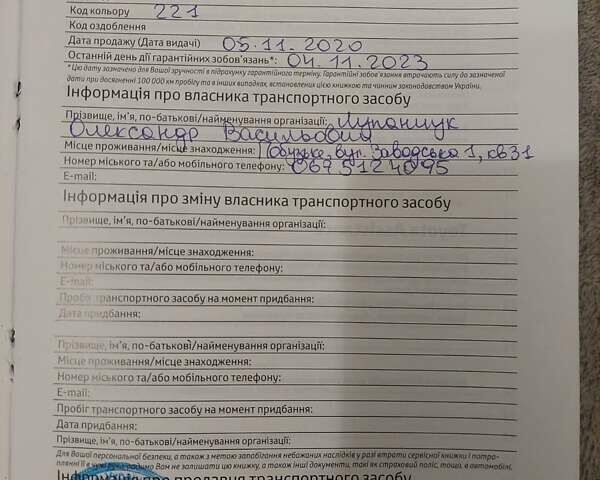 Код кольору 221
Код оздоблення
Дата продажу (Дата видачі) 05.11.2020
Останній день дії гарантійних зобов'язань*: 04.11.2023
* Цю дату зазначено для Вашої зручності в підрахунку гарантійного терміну. Гарантійні зобов'язання втрачають силу до зазначеної
дати при досягненні 100 000 км пробігу та в інших випадках, встановлених цією книжкою та чинним законодавством України.
Інформація про власника транспортного засобу
Прізвище, ім'я, по-батькові/найменування організації:
Олександр Васильович
Місце проживання/місце знаходження: вул. Заводська 1, кв 31
Номер міського та/або мобільного телефону:
E-mail:
Інформація про зміну власника транспортного засобу
Прізвище, ім'я, по-батькові/найменування організації:
Місце проживання/місце знаходження:
Номер міського та/або мобільного телефону:
E-mail:
Пробіг транспортного засобу на момент придбання:
Дата придбання:
Прізвище, ім'я, по-батькові/найменування організації:
Місце проживання/місце знаходження:
Номер міського та/або мобільного телефону:
E-mail:
Пробіг транспортного засобу на момент придбання:
Дата придбання:
Прізвище, ім'я, по-батькові/найменування організації:
Для Вашої персональної безпеки, а також з метою запобігання небажаних наслідків у разі втрати сервісної книжки і потра-
плянні її в чужі руки, радимо Вам не залишати цю книжку, а також інші документи, такі як страховий поліс, тощо, в автомобілі.
Інформація про продавця транспортного засобу